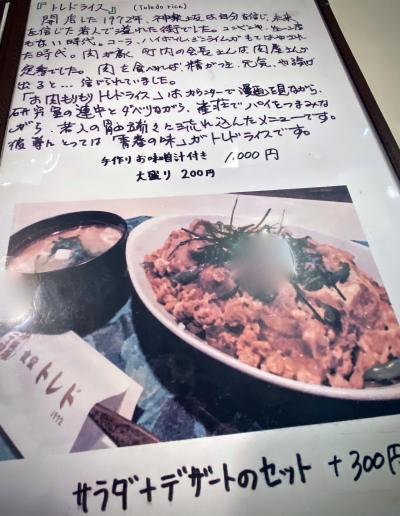 『トレドライス』 (Toledo rice)
開店した1972年、神楽坂は自分を信じ、未来
を信じた若人で溢れた街でした。コンビニや、
もない時代。コーラ、ハイボール、
た時代。肉が高く 町内の会長さんは肉屋さんが
定番でした。「肉を食べれば、精がつき、元気、やる気が
出ると…信じられていました。
「お肉もりもりトレドライス」は カウンターで漫画を見ながら、
研究室の連中とダベリながら、雀荘でパイをつまみな
がら、若人の胃 に流れ込んだメニューです。
彼等にとっては「青春の味」がトレドライスです。
手作りお味噌汁付き 1,000円
大盛り 200円
トレド
1972
サラダ+デザートのセット +300円